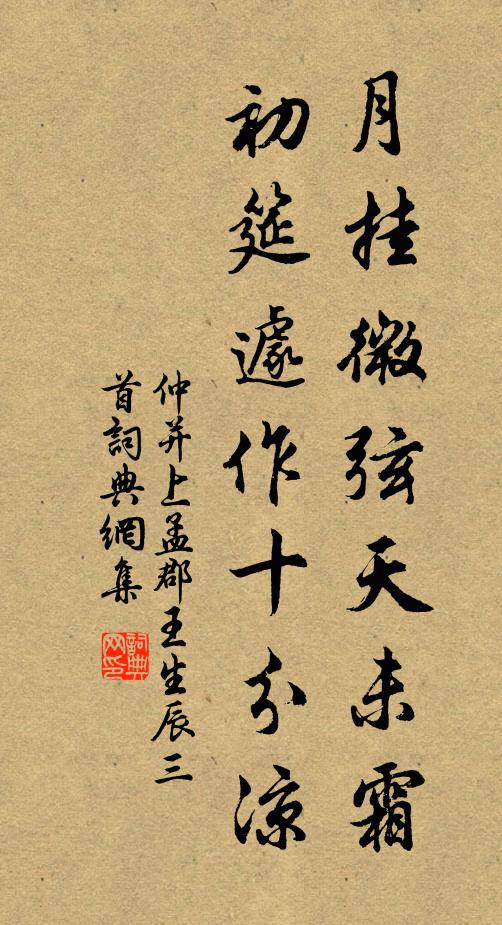 月挂微弦天未霜
初筵遽作十分凉
仲并上孟郡王生辰三
首詞典網集
詞典
网印